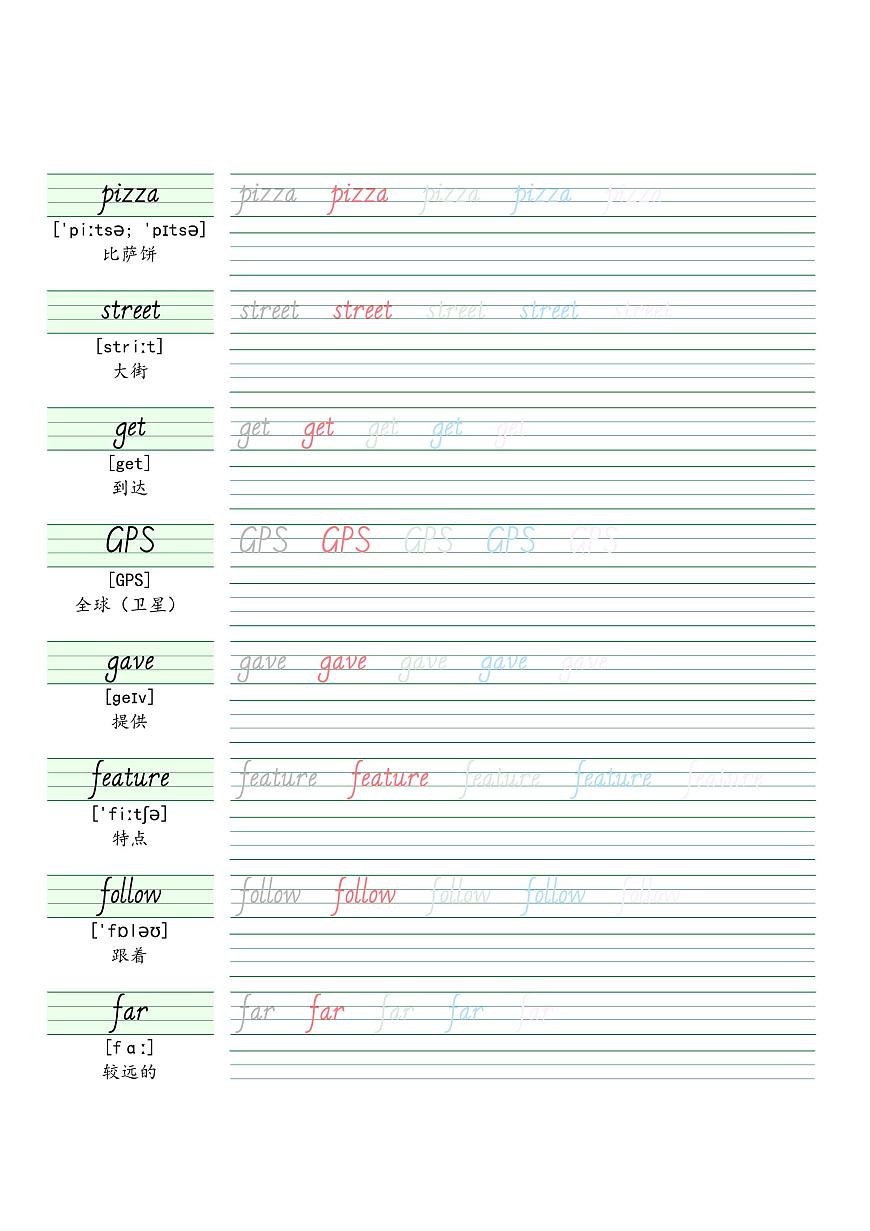 pizza pizza pizza pizza pizza pizza
['piːtsə; 'pɪtsə]
比萨饼
street street street street street street
[striːt]
大街
get get get get get get
[get]
到达
GPS GPS GPS GPS GPS GPS
[GPS]
全球（卫星）
gave gave gave gave gave gave
[geɪv]
提供
feature feature feature feature feature feature
['fiːtʃə]
特点
follow follow follow follow follow follow
['fɒləʊ]
跟着
far far far far far far
[fɑː]
较远的